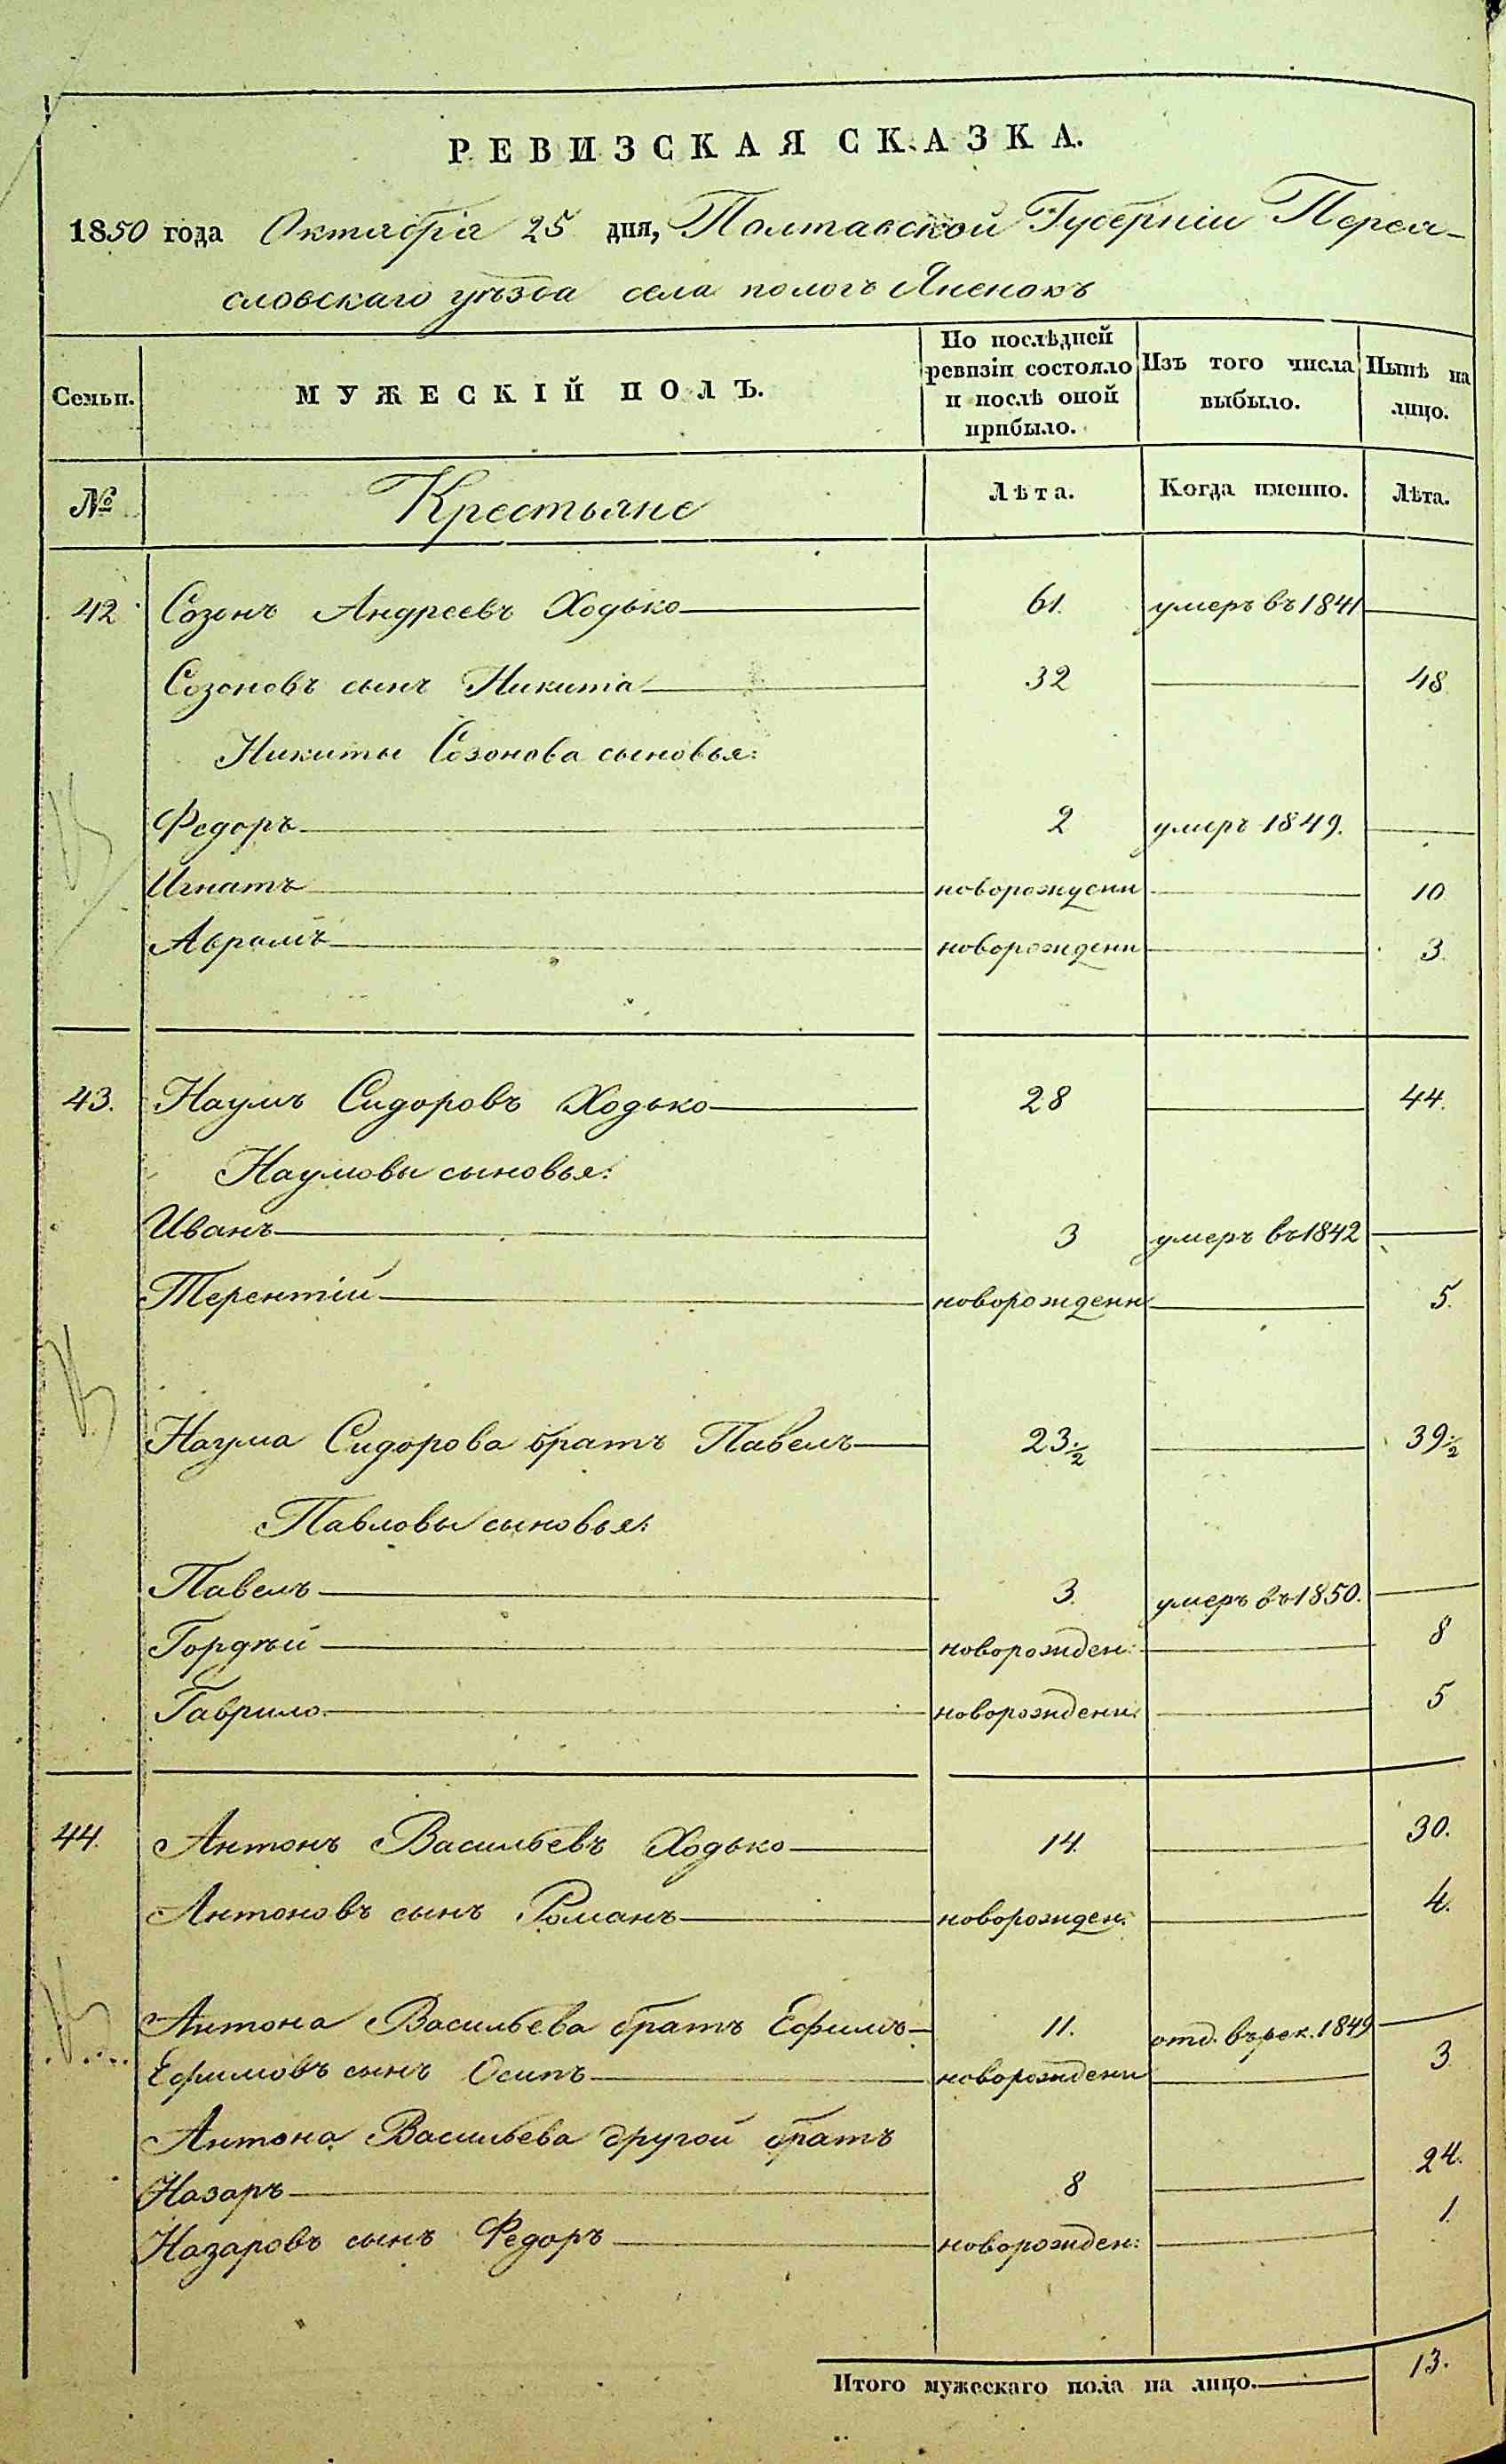 РЕВИЗСКАЯ СКАЗКА.
1850 года Октября 25 дня, Полтавской Губерніи Перея-
словскаго уѣзда села пологъ Яненокъ
Семьи.
МУЖЕСКІЙ ПОЛЪ.
По послѣдней ревизіи состояло и послѣ оной прибыло.
Изъ того числа выбыло.
Нынѣ на лицо.
№ Крестьяне Лѣта. Когда именно. Лѣта.
42 Созонъ Андреевъ Ходько 61. умеръ въ 1841
Созоновъ сынъ Никита 32 48
Никиты Созонова сыновья:
Федоръ 2 умеръ 1849.
Игнатъ новорожденн 10
Аврамъ новорожденн 3.
43. Наумъ Сидоровъ Ходько 28 44.
Наумовы сыновья:
Иванъ 3 умеръ въ 1842
Терентій новорожденн 5.
Наума Сидорова братъ Павелъ 23 1/2 39 1/2
Павловы сыновья:
Павелъ 3. умеръ въ 1850.
Гордѣй новорожден: 8
Гаврило новорожденн: 5
44. Антонъ Васильевъ Ходько 14. 30.
Антоновъ сынъ Романъ новорожден: 4.
Антона Васильева братъ Ефимъ 11. отд. въ рек. 1849
Ефимовъ сынъ Осипъ новорожденн 3
Антона Васильева другой братъ
Назаръ 8 24.
Назаровъ сынъ Федоръ новорожден: 1.
Итого мужескаго пола на лицо. 13.